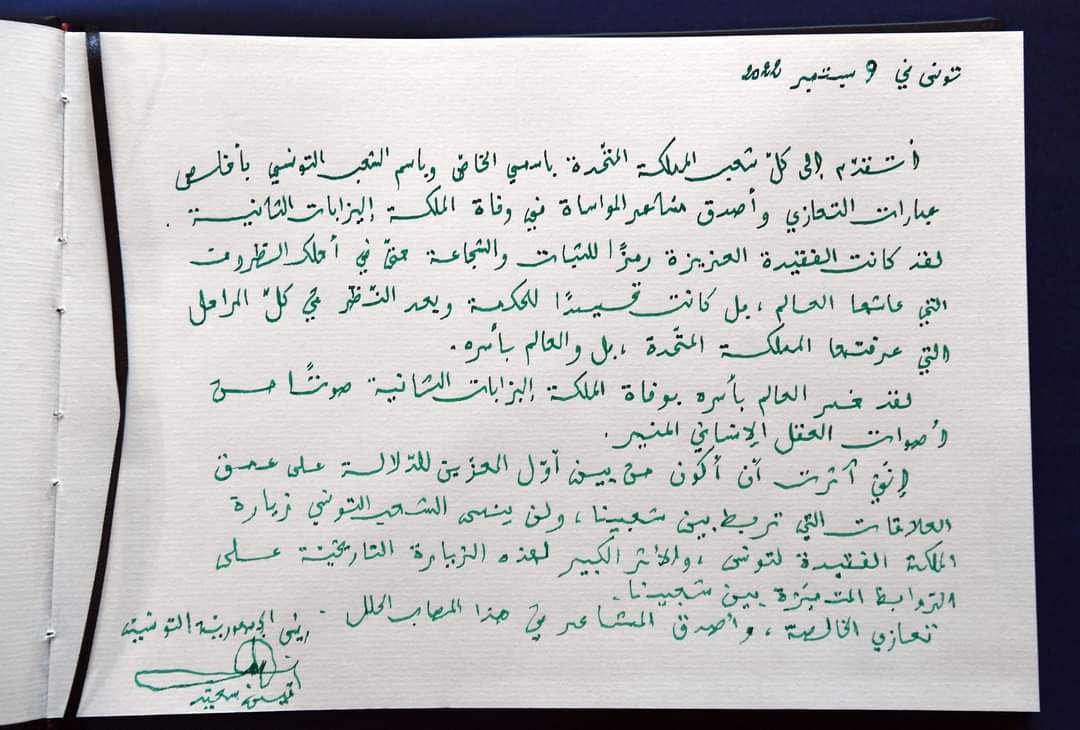 تونس في 9 سبتمبر 2022
أتقدّم إلى كلّ شعب المملكة المتّحدة باسمي الخاصّ وباسم الشعب التونسي بأخلص
عبارات التعازي وأصدق مشاعر المواساة في وفاة الملكة إليزابات الثانية .
لقد كانت الفقيدة العزيزة رمزًا للثبات والشجاعة حتّى في أحلك الظروف
التي عاشها العالم ، بل كانت تجسيدًا للحكمة وبعد النّظر في كلّ المراحل
التي عرفتها المملكة المتّحدة ، بل والعالم بأسره .
لقد خسر العالم بأسره بوفاة الملكة إليزابات الثانية صوتًا من
أصوات العقل الإنساني المنير .
إنّني آثرت أن أكون من بين أوّل المعزّين للدّلالة على عمق
العلاقات التي تربط بين شعبينا ، ولن ينسى الشعب التونسي زيارة
الملكة الفقيدة لتونس ، والأثر الكبير لهذه الزيارة التاريخيّة على
الروابط المتميّزة بين شعبينا .
تعازي الخالصة ، وأصدق المشاعر في هذا المصاب الجلل .
رئيس الجمهوريّة التونسيّة
قيس سعيّد